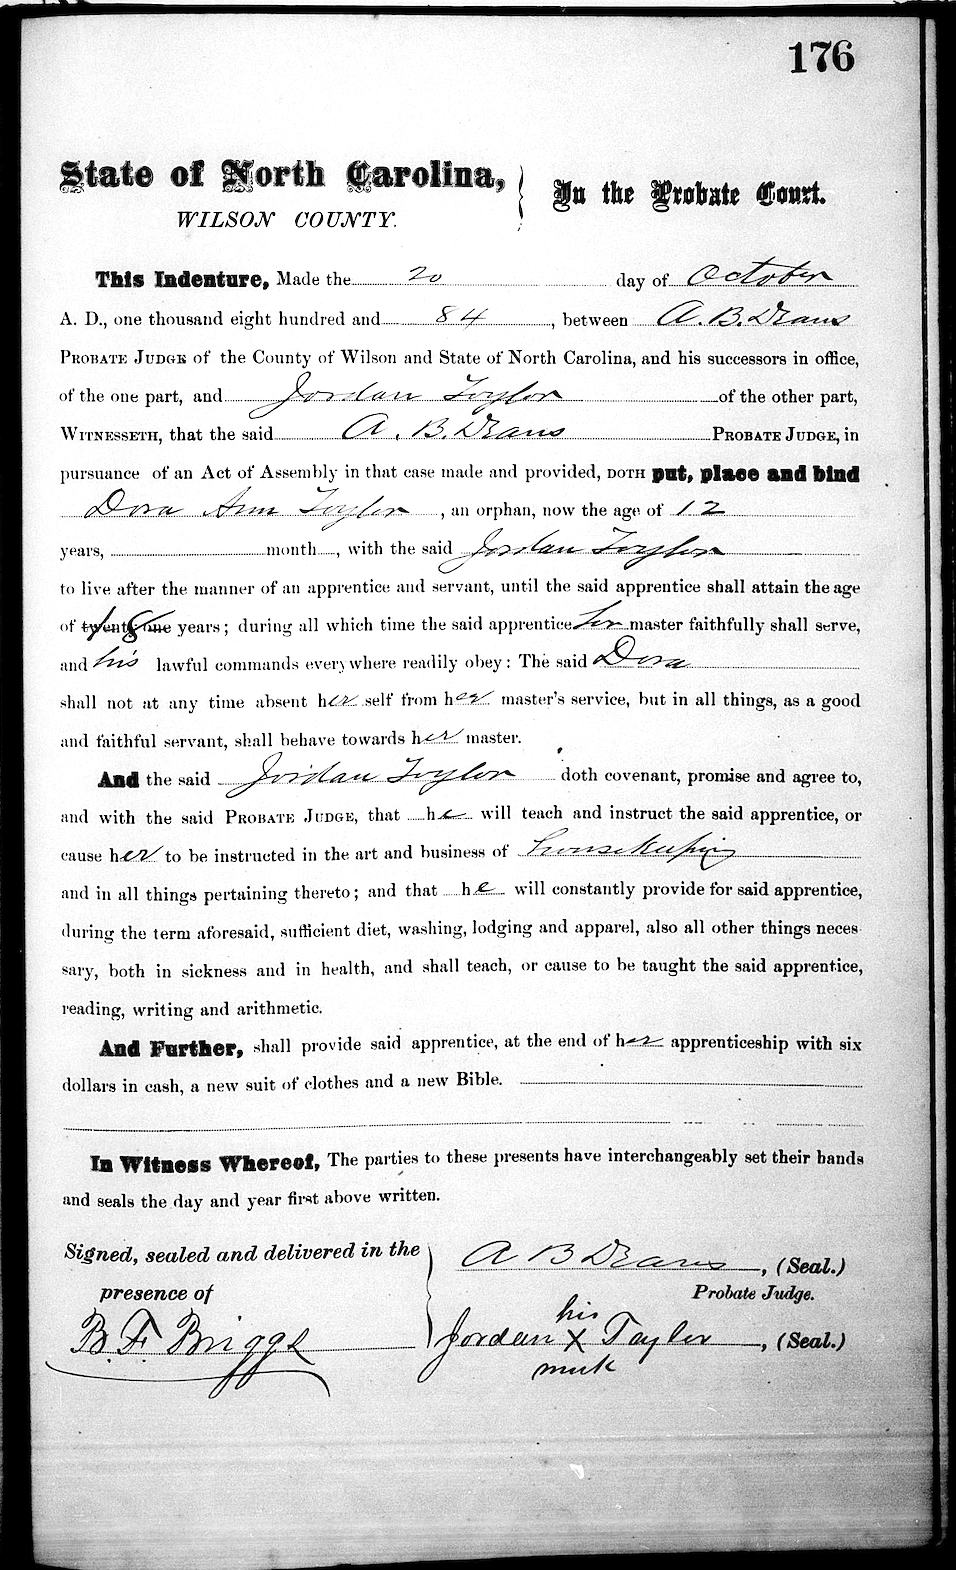 176
State of North Carolina, In the Probate Court.
WILSON COUNTY.
This Indenture, Made the 20 day of October
A. D., one thousand eight hundred and 84, between A. B. Deans
PROBATE JUDGE of the County of Wilson and State of North Carolina, and his successors in office,
of the one part, and Jordan Taylor of the other part,
WITNESSETH, that the said A. B. Deans PROBATE JUDGE, in
pursuance of an Act of Assembly in that case made and provided, DOTH put, place and bind
Dora Ann Taylor, an orphan, now the age of 12
years, month, with the said Jordan Taylor
to live after the manner of an apprentice and servant, until the said apprentice shall attain the age
of twenty-one 18 years; during all which time the said apprentice her master faithfully shall serve,
and his lawful commands everywhere readily obey: The said Dora
shall not at any time absent her self from her master's service, but in all things, as a good
and faithful servant, shall behave towards her master.
And the said Jordan Taylor doth covenant, promise and agree to,
and with the said PROBATE JUDGE, that he will teach and instruct the said apprentice, or
cause her to be instructed in the art and business of housekeeping
and in all things pertaining thereto; and that he will constantly provide for said apprentice,
during the term aforesaid, sufficient diet, washing, lodging and apparel, also all other things neces
sary, both in sickness and in health, and shall teach, or cause to be taught the said apprentice,
reading, writing and arithmetic.
And Further, shall provide said apprentice, at the end of her apprenticeship with six
dollars in cash, a new suit of clothes and a new Bible.
In Witness Whereof, The parties to these presents have interchangeably set their hands
and seals the day and year first above written.
Signed, sealed and delivered in the A B Deans, (Seal.)
presence of Probate Judge.
his
B. F. Briggs Jordan X Taylor, (Seal.)
mark